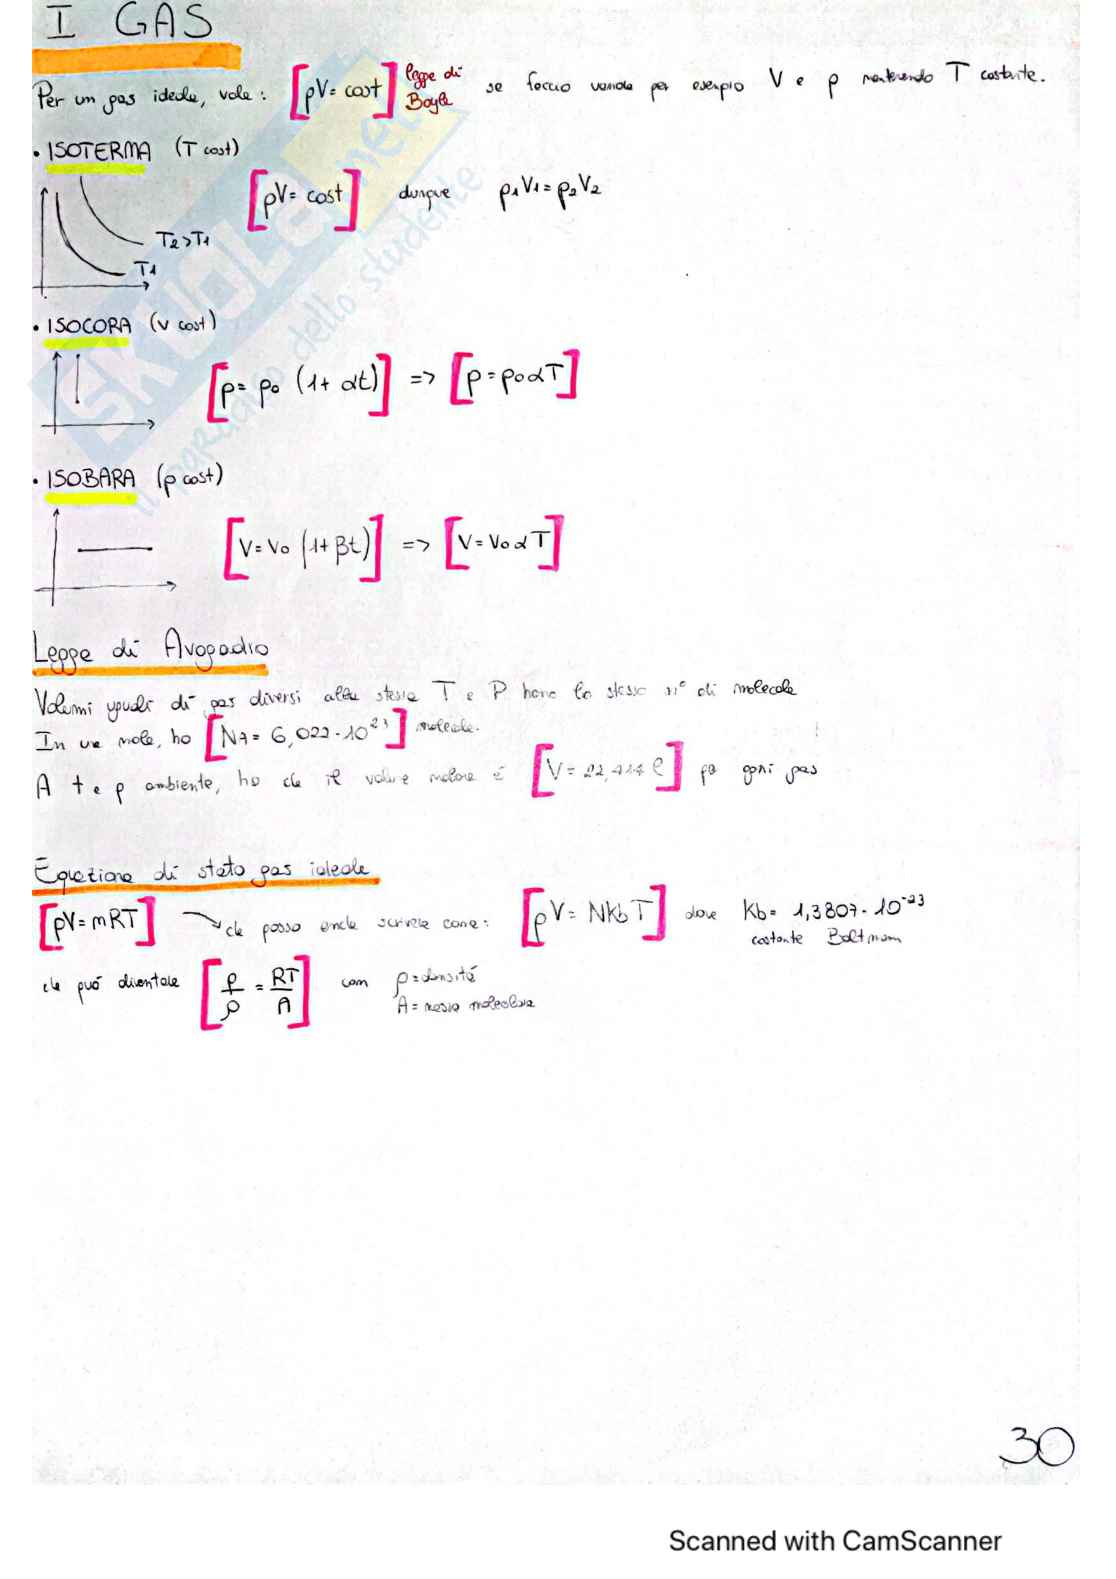 I GAS
Per un gas ideale, vale: [pV = cost] legge di Boyle se faccio variare per esempio V e p mantenendo T costante.
• ISOTERMA (T cost)
[pV = cost] dunque p1V1 = p2V2
T2 > T1
T1
• ISOCORA (V cost)
[p = p0 (1 + αt)] => [p = p0αT]
• ISOBARA (p cost)
[V = V0 (1 + βt)] => [V = V0αT]
Legge di Avogadro
Volumi uguali di gas diversi alla stessa T e P hanno lo stesso n° di molecole
In una mole, ho [NA = 6,022 · 10²³] molecole.
A t e p ambiente, ho che il volume molare è [V = 22,414 l] per ogni gas
Equazione di stato gas ideale
[pV = mRT] che posso anche scrivere come: [pV = NKbT] dove Kb = 1,3807 · 10⁻²³
costante Boltzmann
che può diventare [p/ρ = RT/A] con ρ = densità
A = massa molecolare
30
SKUOLA.net
il paradiso dello studente
Scanned with CamScanner